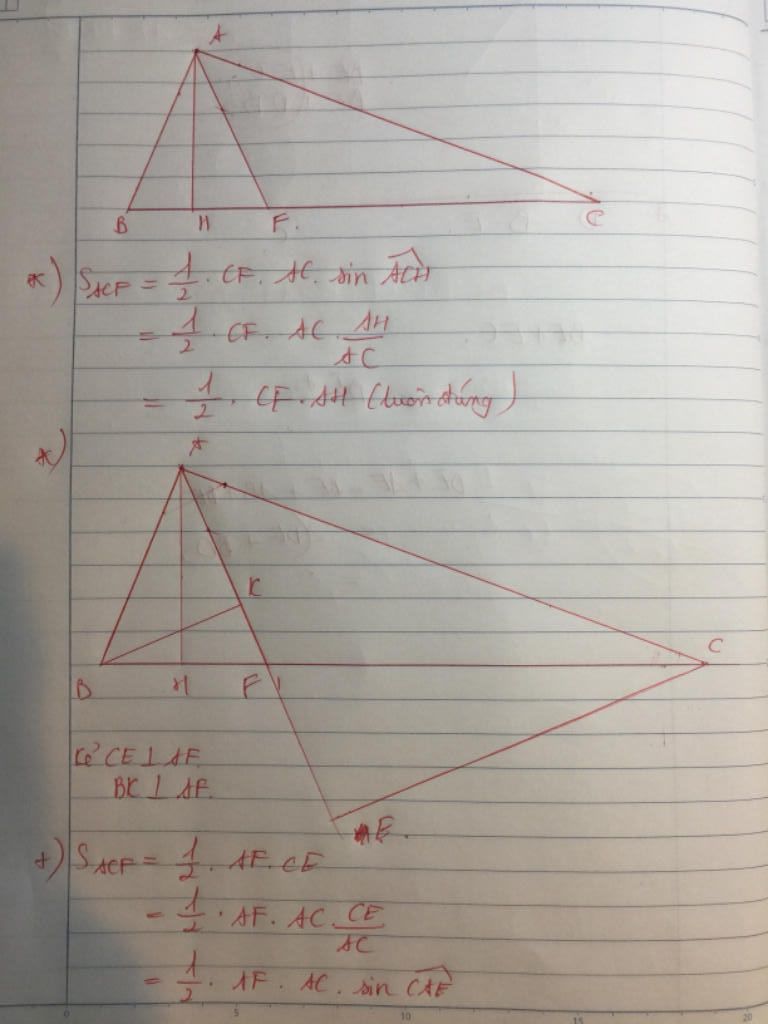 A
B H F. C
*) S_ACF = 1/2 . CF. AC. sin \widehat{ACH}
= 1/2 . CF . AC . AH/AC
= 1/2 . CF . AH (luôn đúng)
*)
A
K
C
B H F
Kẻ CE ⊥ AF.
BK ⊥ AF.
E.
+) S_ACF = 1/2 . AF. CE
= 1/2 . AF . AC . CE/AC
= 1/2 . AF . AC . sin \widehat{CAE}
0 5 10 15 20